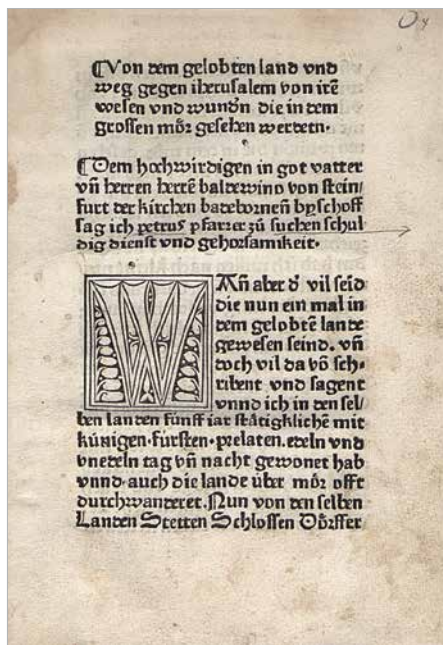 ¶Von dem gelobten land vnd
weg gegen iherusalem von irē
wesen vnd wundn̄ die in dem
grossen moͤr gesehen werden.
¶Dem hochwirdigen in got vatter
vn̄ herren herrē baldewino von stein/
furt der kirchen badebornen̄ byschoff
sag ich petrus pfarrer zů suchen schul
dig dienst vnd gehorsamikeit.
WAn̄ aber d' vil seid
die nun ein mal in
dem gelobtē lande
gewesen seind. vn̄
doch vil da vō sch-
ribent vnd sagent
vnnd ich in den sel/
ben landen fünff iar stätigklichē mit
künigen. fürsten. prelaten. edeln vnd
vnedeln tag vn̄ nacht gewonet hab
vnnd. auch die lande über moͤr offt
durchwanderet. Nun von den selben
Landen Stetten Schlossen Doͤrffer